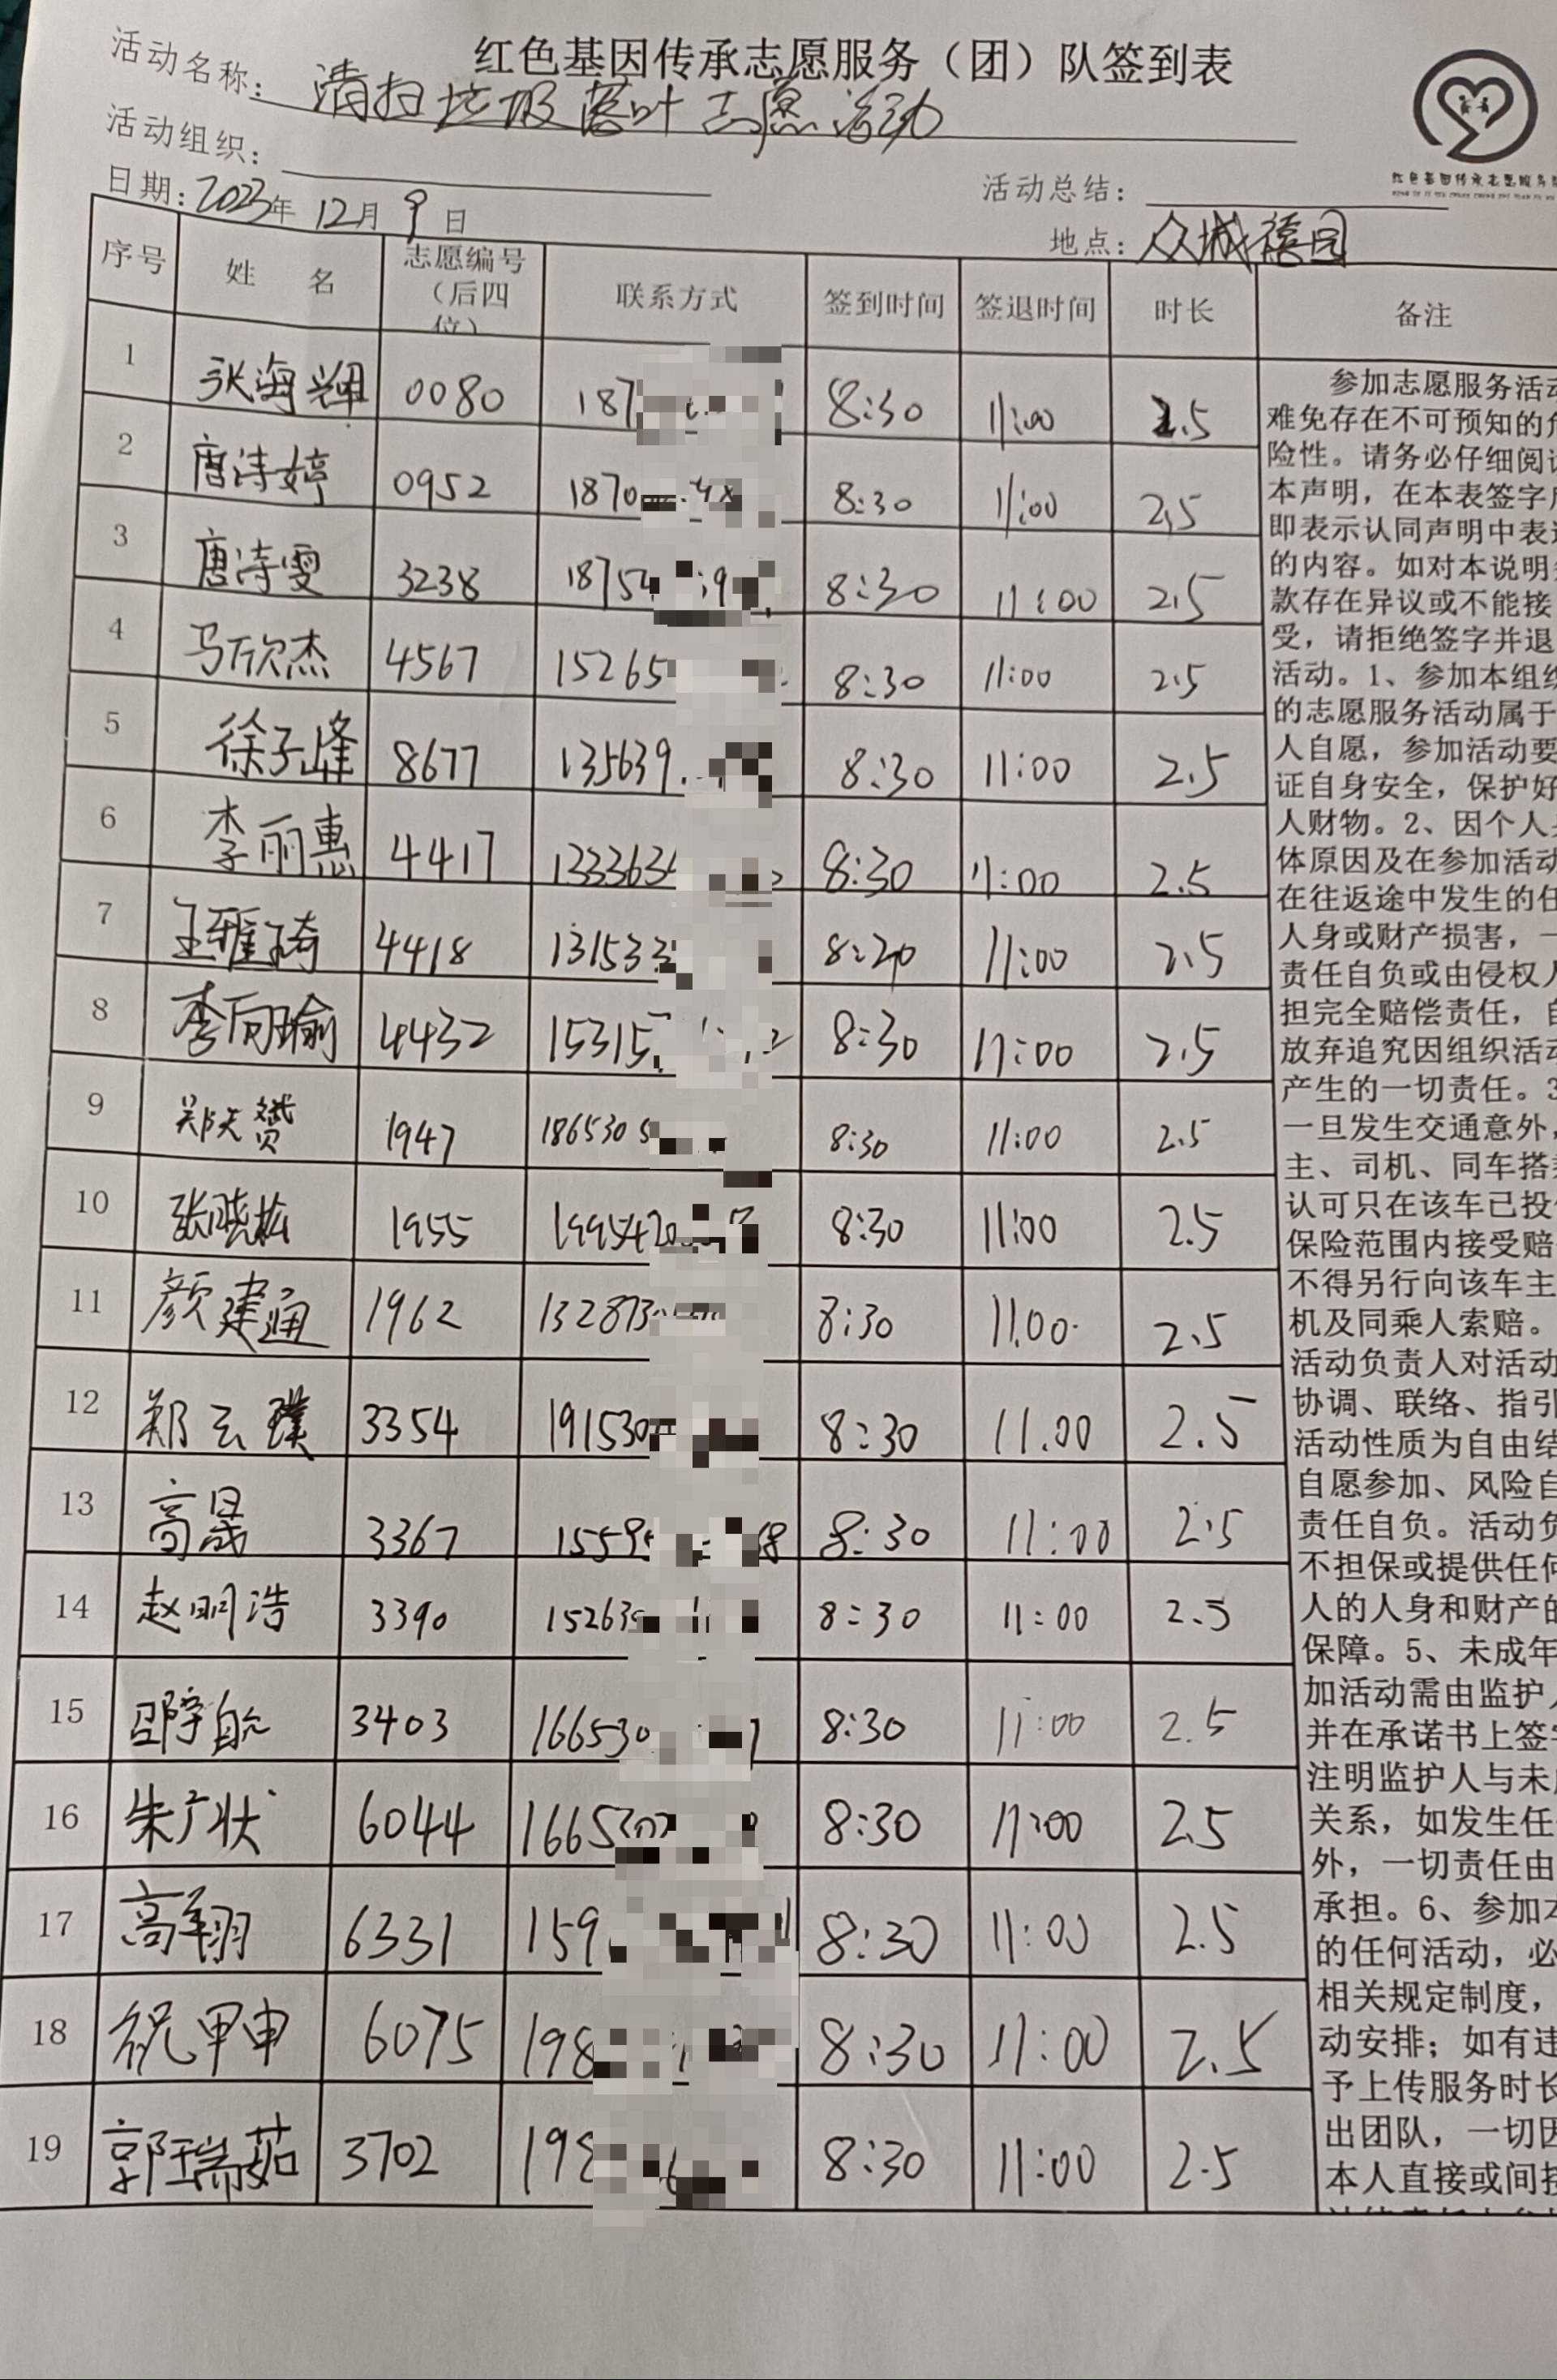 红色基因传承志愿服务（团）队签到表
活动名称：清扫垃圾落叶志愿活动
活动组织：
活动总结：
日期：2023年12月9日
地点：众城德园
红色基因传承志愿服务
序号 姓 名 志愿编号（后四位） 联系方式 签到时间 签退时间 时长 备注
1 张海辉 0080 187 8:30 11:00 2.5
2 唐诗婷 0952 1870 8:30 11:00 2.5
3 唐诗雯 3238 18754 8:30 11:00 2.5
4 马欣杰 4567 15265 8:30 11:00 2.5
5 徐子峰 8677 135639 8:30 11:00 2.5
6 李丽惠 4417 133363 8:30 11:00 2.5
7 王雅琦 4418 131533 8:20 11:00 2.5
8 李向瑜 4432 15315 8:30 11:00 2.5
9 郑天赟 1947 186530 8:30 11:00 2.5
10 张晓松 1955 1995420 8:30 11:00 2.5
11 颜建通 1962 132873 8:30 11.00 2.5
12 郑云璞 3354 191530 8:30 11.00 2.5
13 高晟 3367 1559 8:30 11:00 2.5
14 赵明浩 3390 15263 8:30 11:00 2.5
15 邵宇航 3403 166530 8:30 11:00 2.5
16 朱广状 6044 16653 8:30 11:00 2.5
17 高翔 6331 159 8:30 11:00 2.5
18 祝甲申 6075 198 8:30 11:00 2.5
19 郭瑞茹 3702 198 8:30 11:00 2.5
参加志愿服务活动
难免存在不可预知的危
险性。请务必仔细阅读
本声明，在本表签字后
即表示认同声明中表述
的内容。如对本说明条
款存在异议或不能接
受，请拒绝签字并退
活动。1、参加本组织
的志愿服务活动属于
人自愿，参加活动要
证自身安全，保护好
人财物。2、因个人身
体原因及在参加活动
在往返途中发生的任
人身或财产损害，一
责任自负或由侵权人
担完全赔偿责任，自
放弃追究因组织活动
产生的一切责任。3
一旦发生交通意外，
主、司机、同车搭乘
认可只在该车已投
保险范围内接受赔
不得另行向该车主
机及同乘人索赔。
活动负责人对活动
协调、联络、指引
活动性质为自由结
自愿参加、风险自
责任自负。活动负
不担保或提供任何
人的人身和财产的
保障。5、未成年
加活动需由监护人
并在承诺书上签字
注明监护人与未成
关系，如发生任
外，一切责任由
承担。6、参加本
的任何活动，必
相关规定制度，
动安排；如有违
予上传服务时长
出团队，一切因
本人直接或间接